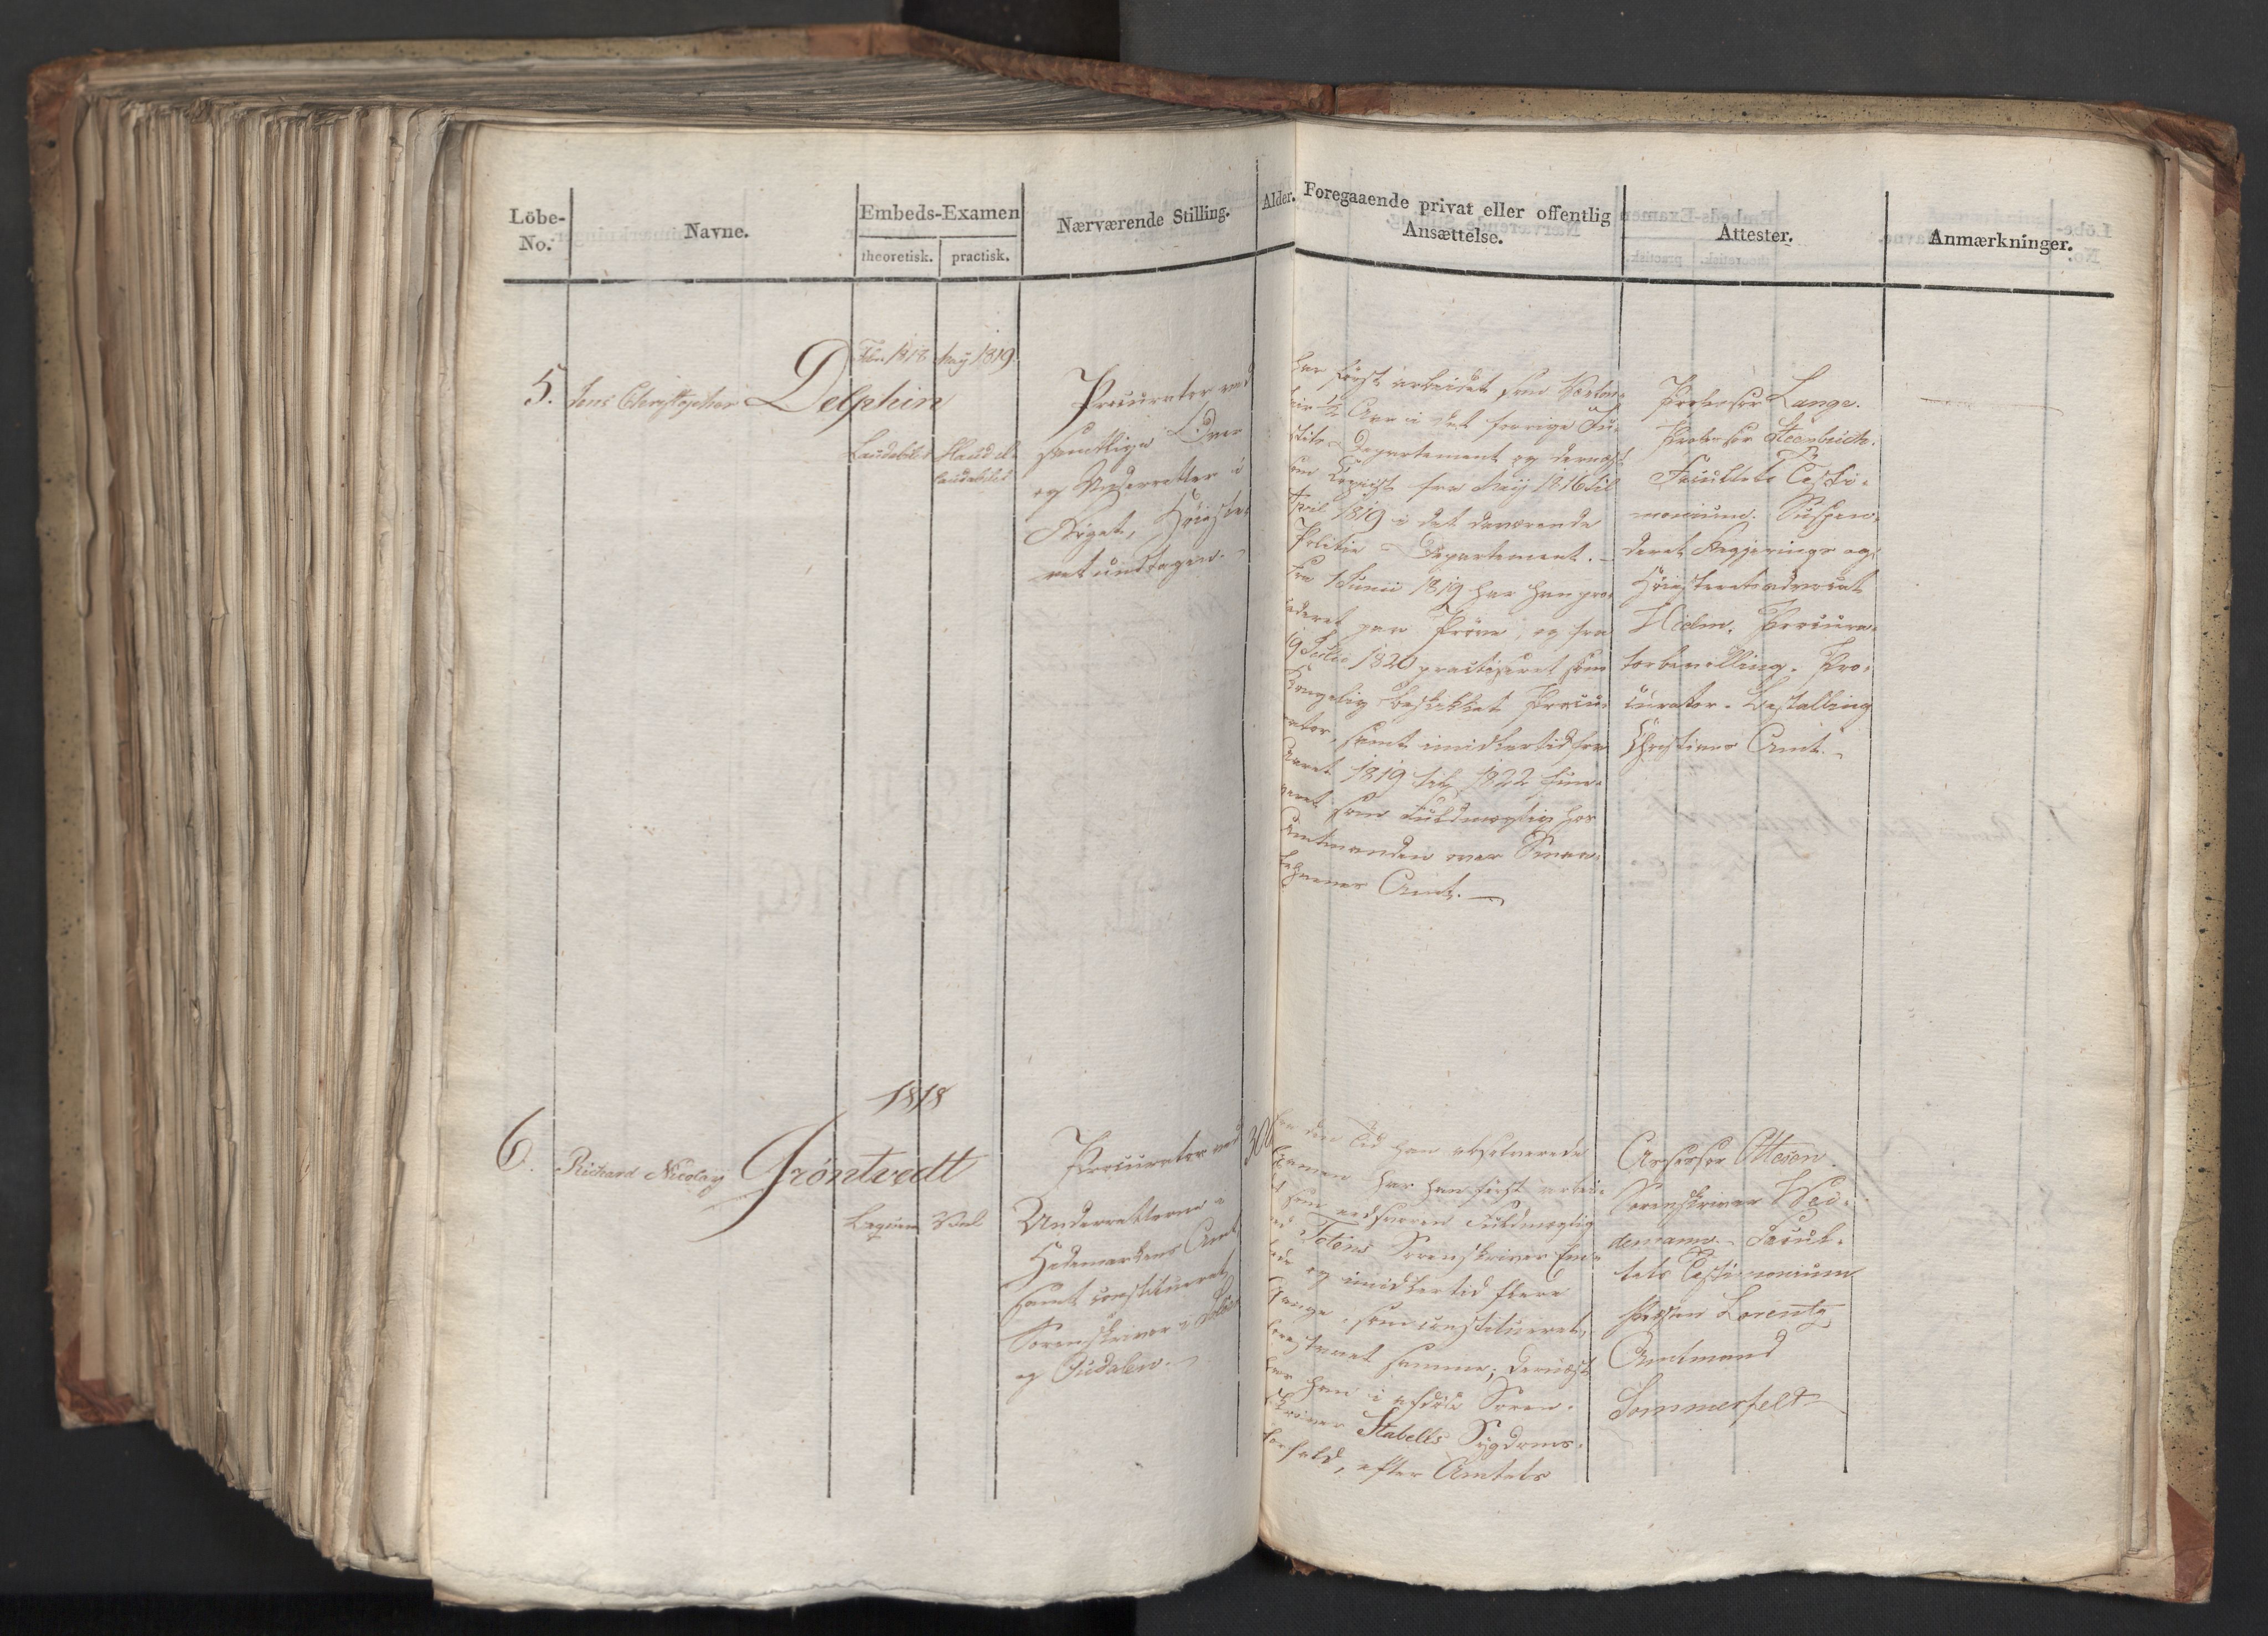 Löbe-No.
Navne.
Embeds-Examen
theoretisk.
practisk.
Nærværende Stilling.
Alder.
Foregaaende privat eller offentlig
Ansættelse.
Attester.
Anmærkninger.
5. Jens Christopher Delphin
1818 May 1819.
Laudabilis
Haud il-
laudabilis
Procurator ved
samtlige Over
og Underretter i
Riget, Høieste-
ret undtagen.
har først arbeidet som Volon-
tair 1/2 Aar i det forrige Ju-
stits Departement og dernæst
som Copiist fra May 1816 til
April 1819 i det daværende
Politie Departement.
Fra 1 Junii 1819 har han pro-
cederet paa Prøve, og fra
19 Julii 1820 practiseret som
Kongelig beskikket Procu-
rator, samt imidlertid fra
Aaret 1819 til 1822 fun-
geret som Fuldmægtig hos
Amtmanden over Smaa-
lehnenes Amt.
Professor Lange.
Professor Steenbuch.
Facultets Testi-
monium. Suspen-
deret Regjerings og
Høiesteretsadvocat
Hielm. Procura-
torbevilling. Pro-
curator-Bestalling
Christians Amt.
6. Richard Nicolay Gröntvedt
1818
Beqvem Vel
Procurator ved
Underretterne i
Hedemarkens Amt
samt constitueret
Sorenskriver i Solør
og Oudalen.
30
Fra den Tid han absolverede
Examen har han først arbei-
det som edsvoren Fuldmægtig
ved Totens Sorenskriver Em-
bede og imidlertid flere
Gange, som constitueret,
forestaaet samme; dernæst
har han i afdøde Soren-
skriver Stabells Sygdoms-
forfald, efter Amtets
Assessor Ottesen.
Sorenskriver Wei-
demann. Facul-
tets Testimonium
Lorentz
Amtmand
Sommerfelt